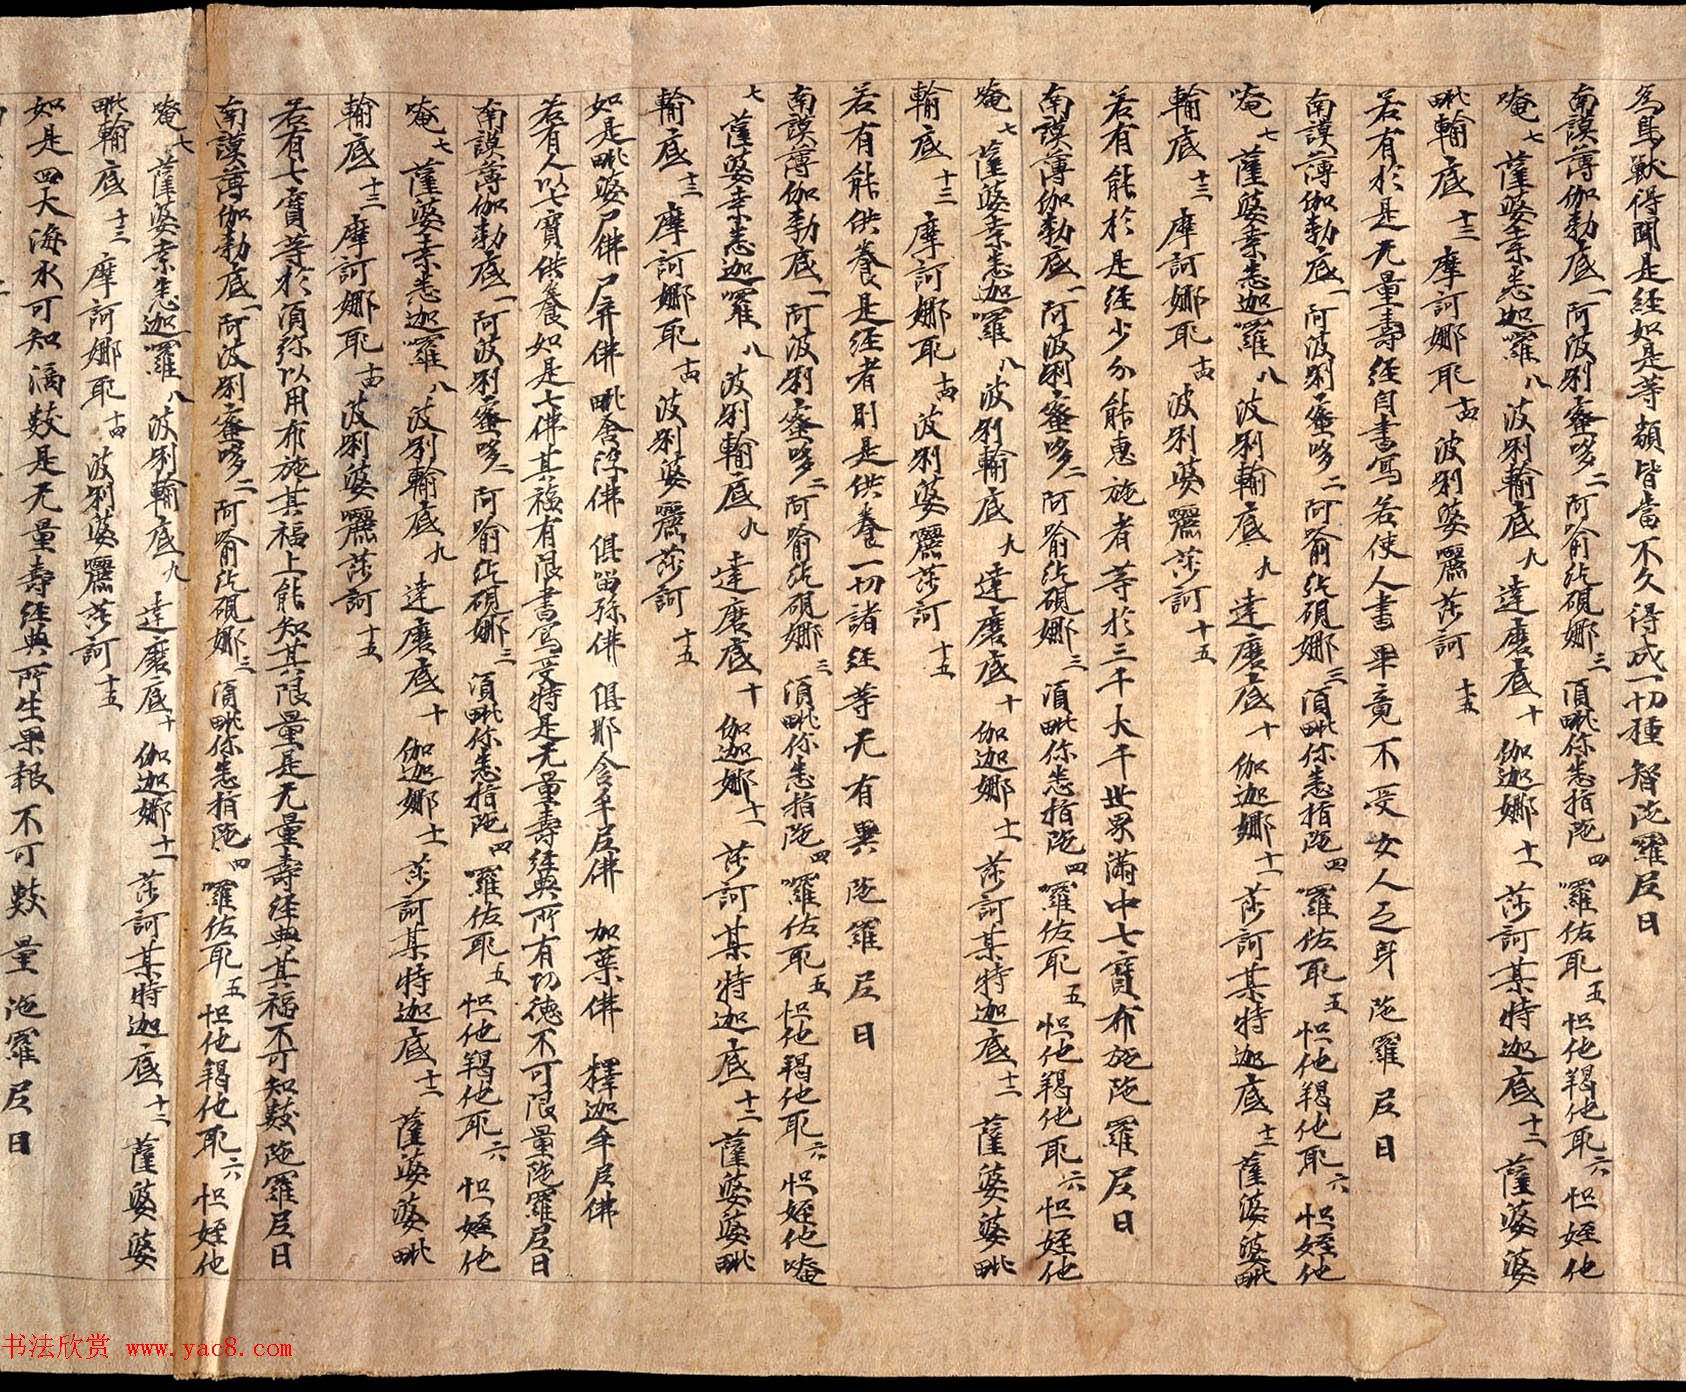 為鳥獸得聞是經如是等類皆當不久得成一切種智陁羅尼曰
南謨薄伽勃底一阿波唎蜜哆二阿喻紇硯娜三湏毗你悉指陁四囉佐耶五怛他羯他耶六怛姪他
唵七薩婆桒悉迦囉八波唎輸底九達磨底十伽迦娜十一莎訶某特迦底十二薩婆婆
毗輸底十三摩訶娜耶十四波唎婆囇莎訶十五
若有於是无量壽經自書寫若使人書畢竟不受女人之身陁羅尼曰
南謨薄伽勃底一阿波唎蜜哆二阿喻紇硯娜三湏毗你悉指陁四囉佐耶五怛他羯他耶六怛姪他
唵七薩婆桒悉迦囉八波唎輸底九達磨底十伽迦娜十一莎訶某特迦底十二薩婆婆毗
輸底十三摩訶娜耶十四波唎婆囇莎訶十五
若有能於是經少分能惠施者等於三千大千世界滿中七寳布施陁羅尼曰
南謨薄伽勃底一阿波唎蜜哆二阿喻紇硯娜三湏毗你悉指陁四囉佐耶五怛他羯他耶六怛姪他
唵七薩婆桒悉迦囉八波唎輸底九達磨底十伽迦娜十一莎訶某特迦底十二薩婆婆毗
輸底十三摩訶娜耶十四波唎婆囇莎訶十五
若有能供養是經者則是供養一切諸經等无有異陁羅尼曰
南謨薄伽勃底一阿波唎蜜哆二阿喻紇硯娜三湏毗你悉指陁四囉佐耶五怛他羯他耶六怛姪他唵
七薩婆桒悉迦囉八波唎輸底九達磨底十伽迦娜十一莎訶某特迦底十二薩婆婆毗
輸底十三摩訶娜耶十四波唎婆囇莎訶十五
如是毗婆尸佛尸弃佛毗舍浮佛俱留孫佛俱那含牟尼佛加葉佛釋迦牟尼佛
若有人以七寳供養如是七佛其福有限書寫受持是无量壽經典所有功德不可限量陁羅尼曰
南謨薄伽勃底一阿波唎蜜哆二阿喻紇硯娜三湏毗你悉指陁四囉佐耶五怛他羯他耶六怛姪他
唵七薩婆桒悉迦囉八波唎輸底九達磨底十伽迦娜十一莎訶某特迦底十二薩婆婆毗
輸底十三摩訶娜耶十四波唎婆囇莎訶十五
若有七寳等於湏弥以用布施其福上能知其限量是无量壽經典其福不可知數陁羅尼曰
南謨薄伽勃底一阿波唎蜜哆二阿喻紇硯娜三湏毗你悉指陁四囉佐耶五怛他羯他耶六怛姪他
唵七薩婆桒悉迦囉八波唎輸底九達磨底十伽迦娜十一莎訶某特迦底十二薩婆婆
毗輸底十三摩訶娜耶十四波唎婆囇莎訶十五
如是四大海水可知滴數是无量壽經典所生果報不可數量陁羅尼曰
书法欣赏 www.yac8.com